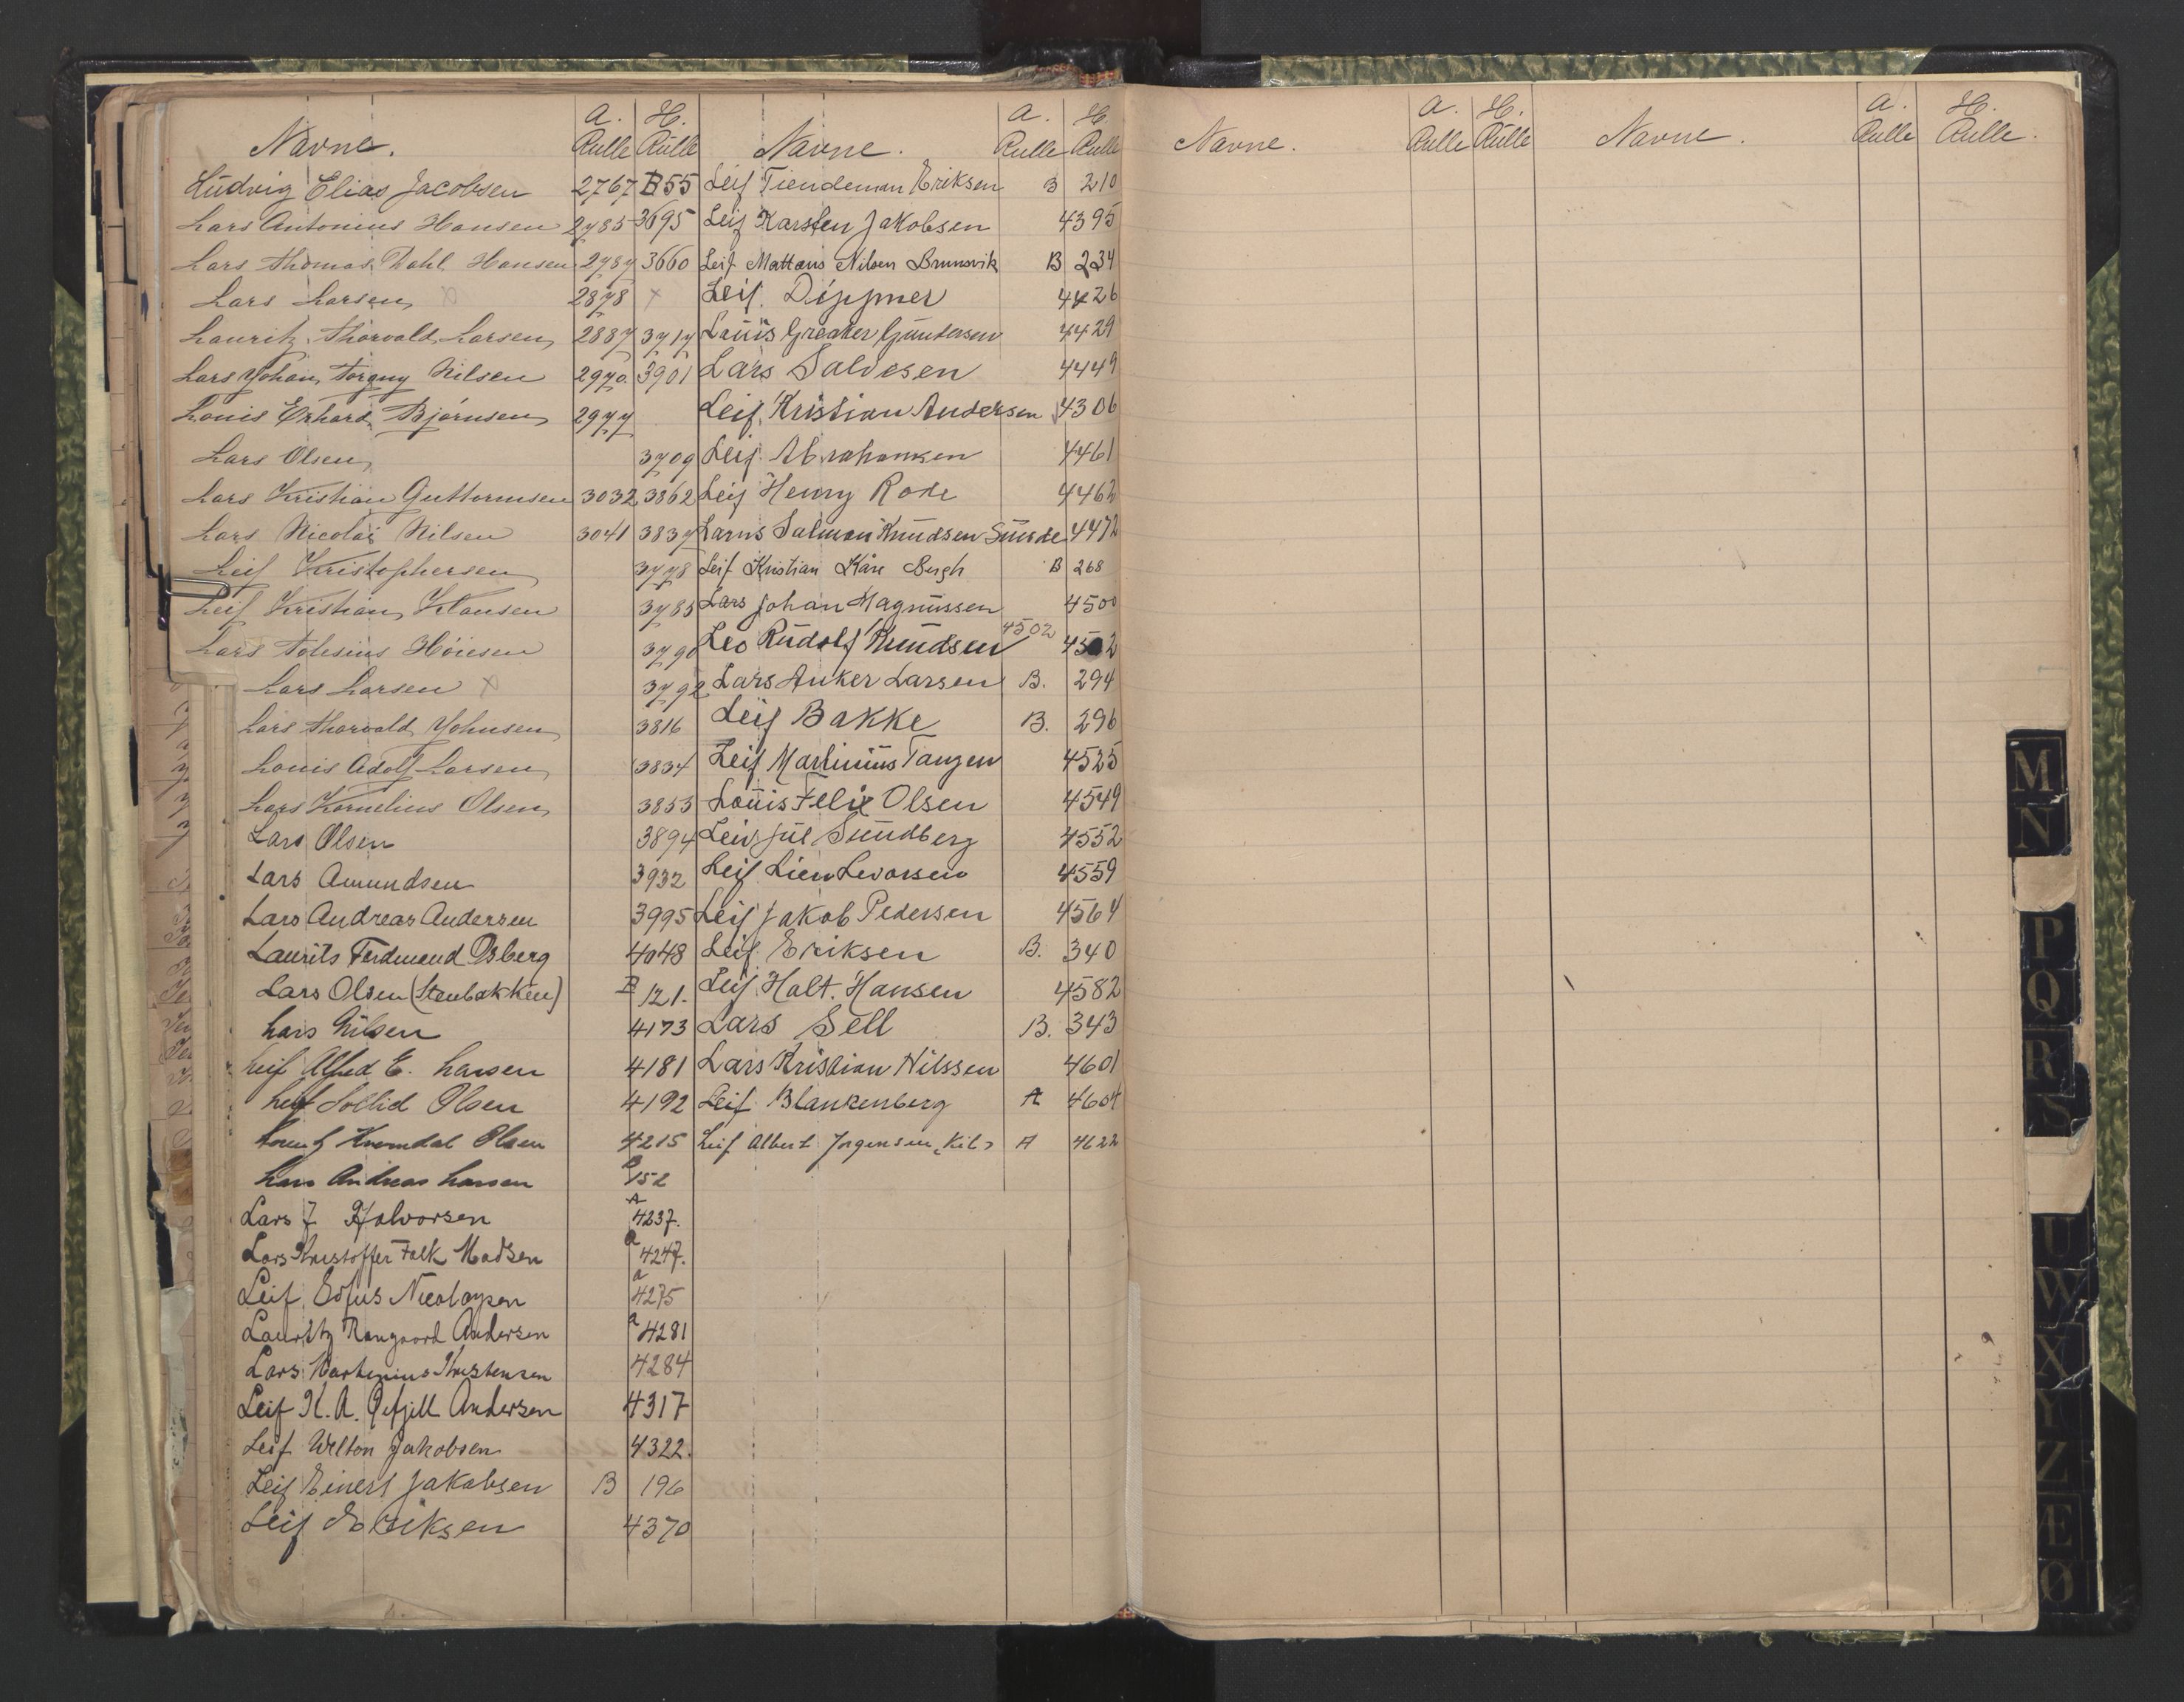 Navne. A. Rulle H. Rulle
Ludvig Elias Jacobsen 2767 B 55
Lars Antonius Hansen 2785 3695
Lars Thomas Dahl Hansen 2787 3660
Lars Larsen x 2878 x
Lauritz Thorvald Larsen 2887 3717
Lars Johan Torgny Nilsen 2970. 3901
Louis Erhard Bjørnsen 2977
Lars Olsen 3709
Lars Kristian Guttormsen 3032 3862
Lars Nicolai Nilsen 3041 3837
Leif Kristophersen 3778
Leif Kristian Klausen 3785
Lars Høiesen 3790
Lars Larsen x 3792
Lars Thorvald Johnsen 3816
Louis Adolf Larsen 3834
Lars Kornelius Olsen 3853
Lars Olsen 3894
Lars Amundsen 3932
Lars Andreas Andersen 3995
Laurits Ferdinend Osberg 4048
Lars Olsen (Stenbakken) B 121.
Lars Nilsen 4173
Leif Alfred E. Larsen 4181
Leif Sollid Olsen 4192
Kvemdal Olsen 4215
Lars Andreas Larsen B 152
Lars J Halvorsen A 4237.
Lars Kristoffer Falk Madsen a 4247.
Leif Nicolaysen a 4275
Lauritz Andersen a 4281
Lars Martinius Kristensen 4284
Leif K. A. Andersen 4317
Leif Welton Jakobsen 4322.
Leif Einert Jakobsen B 196
Leif Eriksen 4370
Navne. A. Rulle H. Rulle
Leif Tiendeman Eriksen B 210
Leif Karsten Jakobsen 4395
Leif Mattæus Nilsen Brunsvik B 234
Leif. Dippner 4426
Louis Greaker Gundersen 4429
Lars Salvesen 4449
Leif Kristian Andersen 4306
Leif Abrahamsen 4461
Leif Henry Rode 4462
Salman Knudsen Sunde 4472
Leif Kristian Kåre Bergh B 268
Lars Johan Magnussen 4500
Leo Rudolf Knudsen 4502 4502
Lars Anker Larsen B. 294
Leif Bakke B. 296
Leif Martinius Tangen 4525
Louis Felix Olsen 4549
Leiv Jul Sundberg 4552
Leif Lien Levorsen 4559
Leif Jakob Pedersen 4564
Leif Eriksen B. 340
Leif Halt. Hansen 4582
Lars Sell B. 343
Lars Kristian Nilssen 4601
Leif Blankenberg A 4604
Leif Albert Jørgensen A 4622
Navne. A. Rulle H. Rulle Navne. A. Rulle H. Rulle.
M
N
P
Q
R
S
U
W
X
Y
Z
Æ
Ø